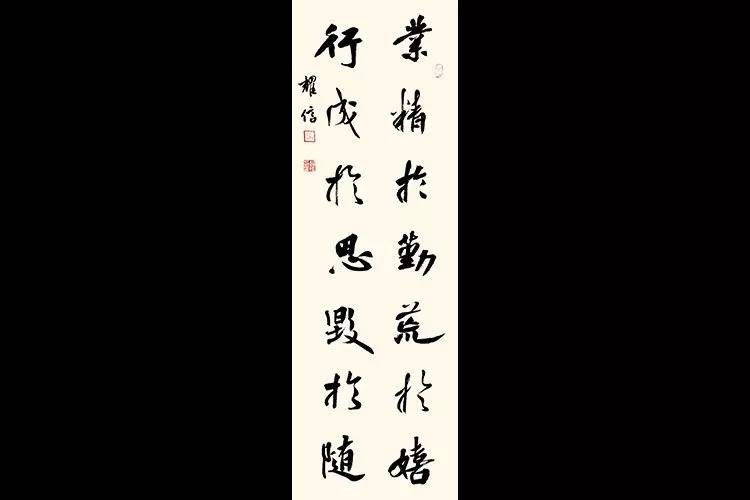 業精於勤荒於嬉
行成於思毀於随
耀信